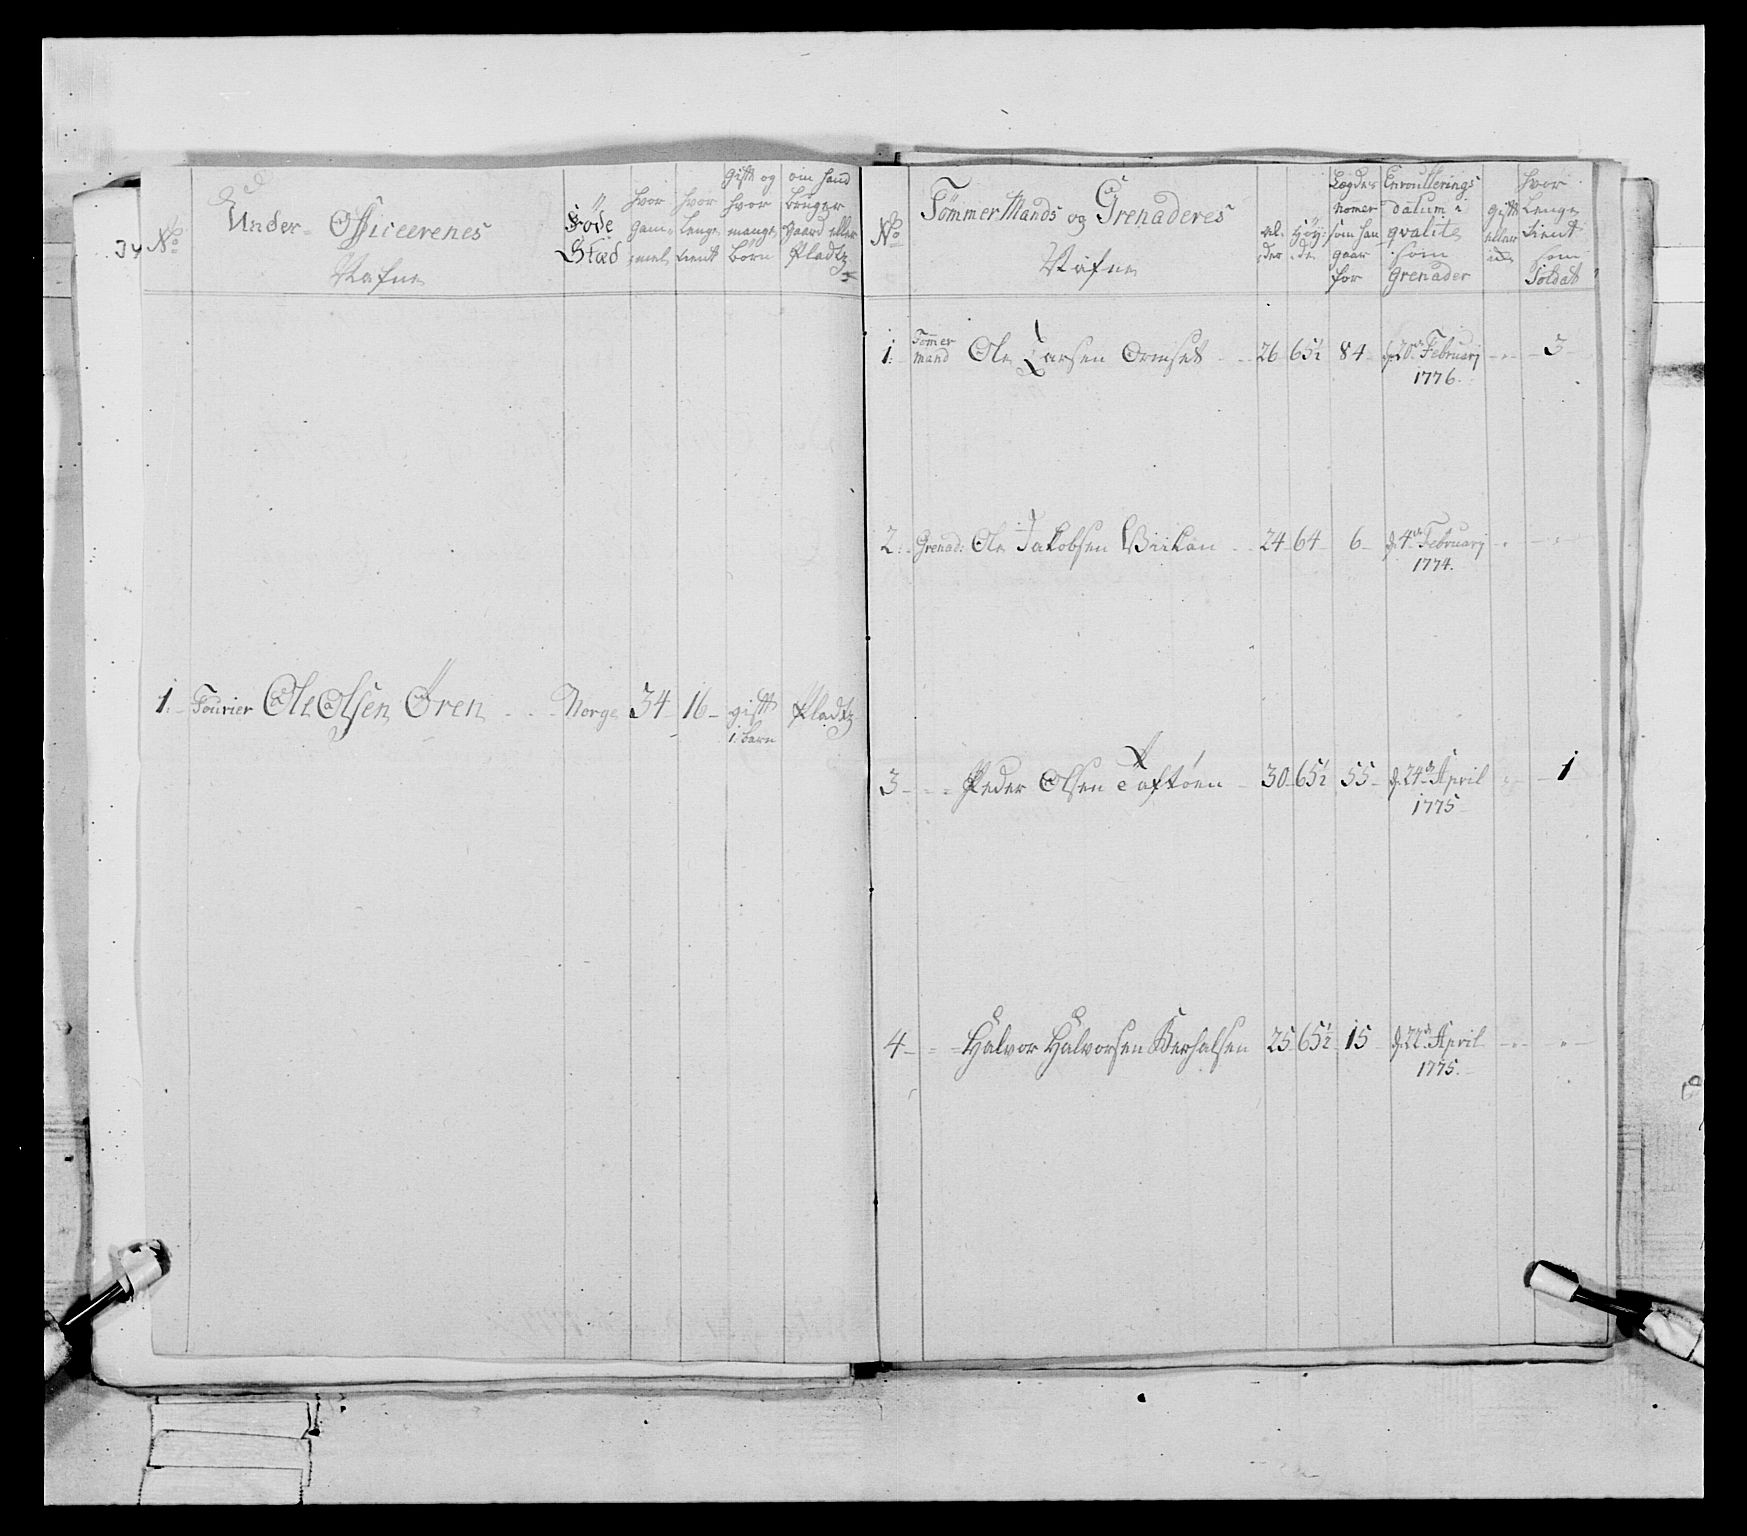 34
No
Under- Officeerenes
Nafne
Föde
Stæd
hvor
gam=
mel
hvor
lenge
tient
gift og
hvor
mange
börn
om hand
bruger
gaard eller
Pladtz
1. Fourier Ole Olsen Ören Norge 34 16 gift Pladtz
1: barn
No
TömmerMands og Grenaderes
Nafne
al-
der
Höy-
de
Lægdes
Nomer
som han
gaar
for
Enroullerings
datum i
qvalite
som
Grenader
gift
eller
hvor
lenge
tient
som
Soldat
1. Tömmer
mand Ole Larsen Ormset 26 65½ 84 d. 20de Februarj 3
1776.
2. Grenad: Ole Jakobsen Viikan 24 64 6 d. 4de Februarj
1774.
3 Peder Olsen Taftöen 30 65½ 55 d. 24de April 1
1775
4 Halvor Halvorsen Berhalsen 25 65½ 15 d. 22de April
1775.